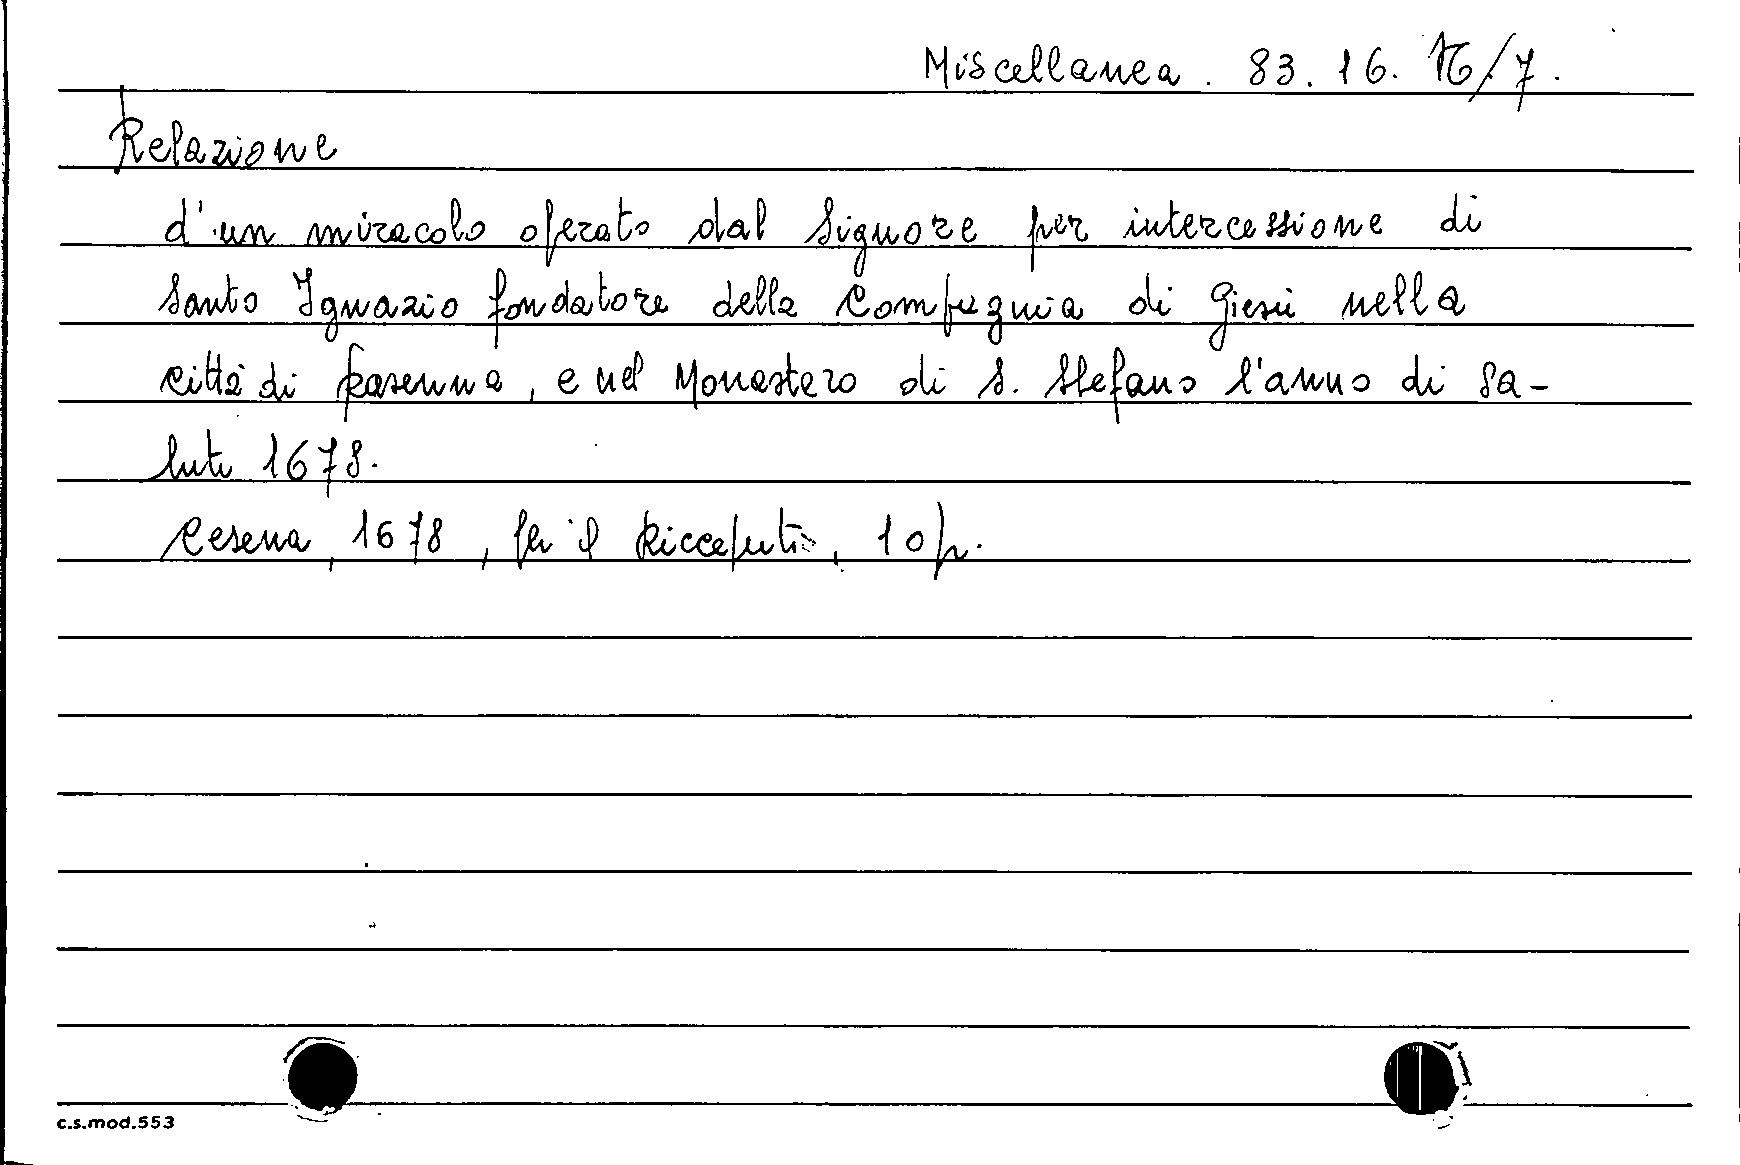 Miscellanea. 83. 16. 16/7.
Relazione
d'un miracolo operato dal Signore per intercessione di
Santo Ignazio fondatore della Compagnia di Giesù nella
città di Ravenna, e nel Monastero di S. Stefano l'anno di Sa-
lute 1678.
Cesena, 1678, per il Ricceputi, 10 p.
c.s.mod.553